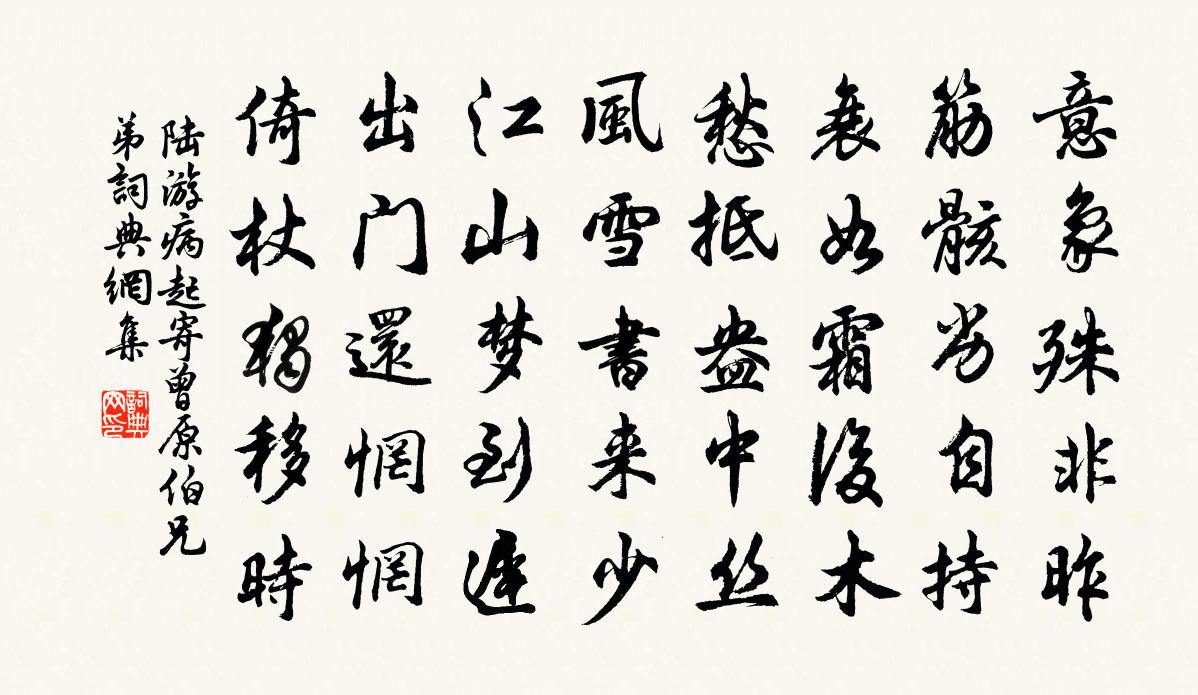 意象殊非昨
筋骸劣自持
衰如霜後木
愁抵盎中丝
風雪書来少
江山梦到遲
出門還惘惘
倚杖獨移時
陸游病起寄曾原伯兄
弟詞典網集
詞典
网印